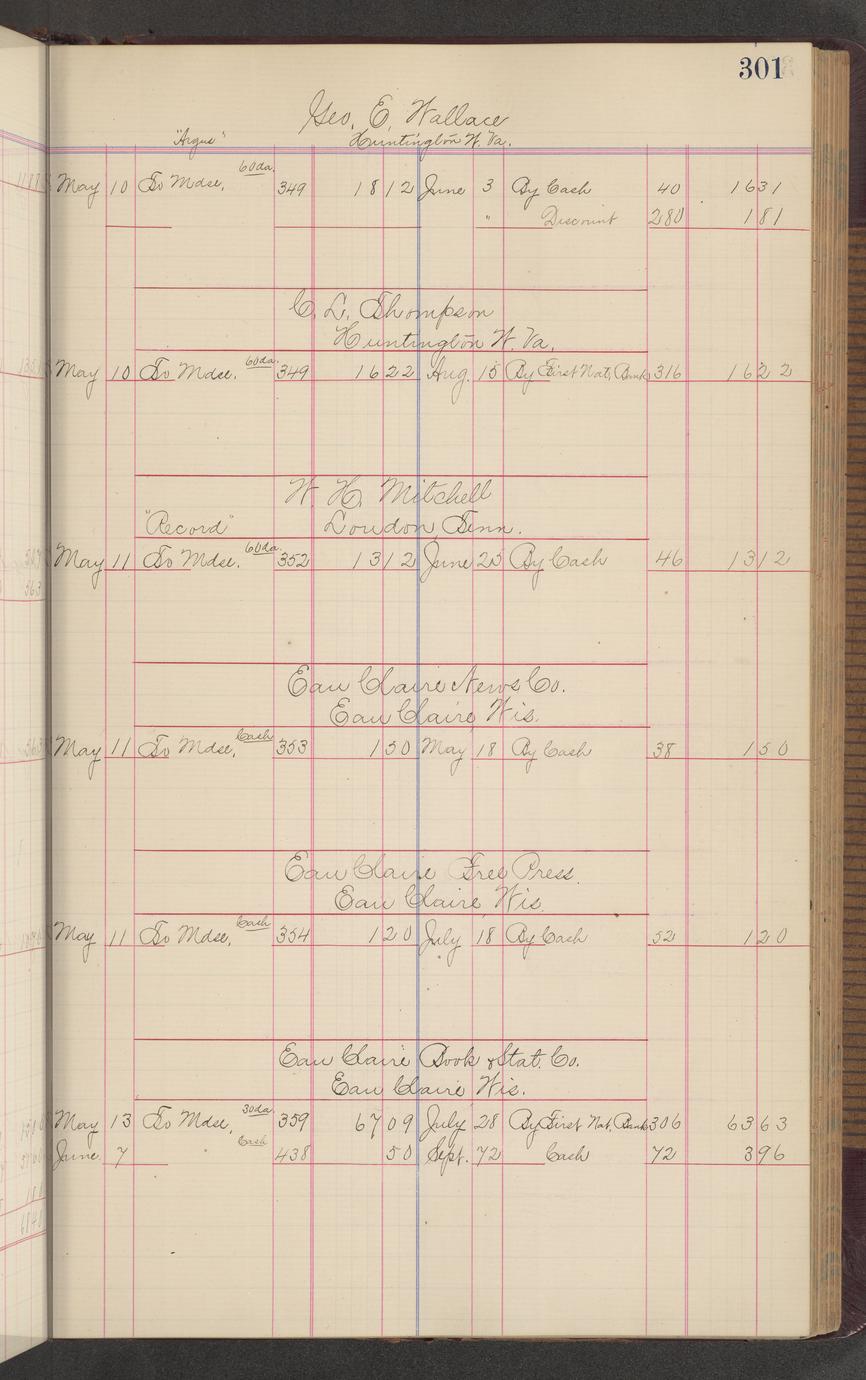 301
Geo. E. Wallace
"Argus" Huntington W. Va.
May 10 To Mdse. 60da. 349 18 12 June 3 By Cash 40 16 31
" Discount 280 1 81
C. L. Thompson
Huntington W. Va.
May 10 To Mdse. 60da. 349 16 22 Aug. 15 By First Nat. Bank 316 16 22
W. H. Mitchell
"Record" Loudon, Tenn.
May 11 To Mdse. 60da 352 13 12 June 25 By Cash 46 13 12
Eau Claire News Co.
Eau Claire, Wis.
May 11 To Mdse, Cash 353 1 50 May 18 By Cash 38 1 50
Eau Claire Free Press.
Eau Claire, Wis.
May 11 To Mdse, Cash 354 1 20 July 18 By Cash 52 1 20
Eau Claire Book & Stat. Co.
Eau Claire Wis.
May 13 To Mdse, 30da 359 67 09 July 28 By First Nat. Bank 306 63 63
June 7 Cash 438 50 Sept. 72 Cash 72 3 96